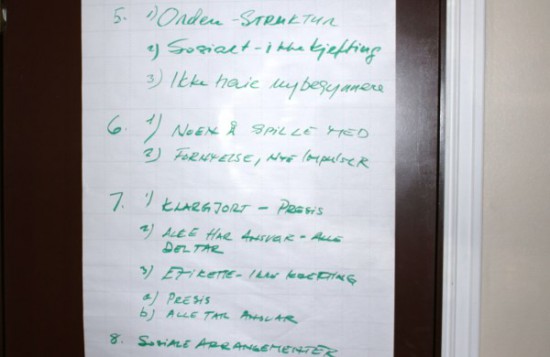 5. 1) Orden - STRUKTUR
2) Sosialt - ikke kjefting
3) Ikke nybegynnere
6. 1) NOEN Å SPILLE MED
2) FORNYELSE, NYE IMPULSER
7. 1) KLARGJORT - PRESIS
2) ALLE HAR ANSVAR - ALLE
DELTAR
3) ETIKETTE - IKKE KJEFTING
a) PRESIS
b) ALLE TAR ANSVAR
8. SOSIALE ARRANGEMENTER